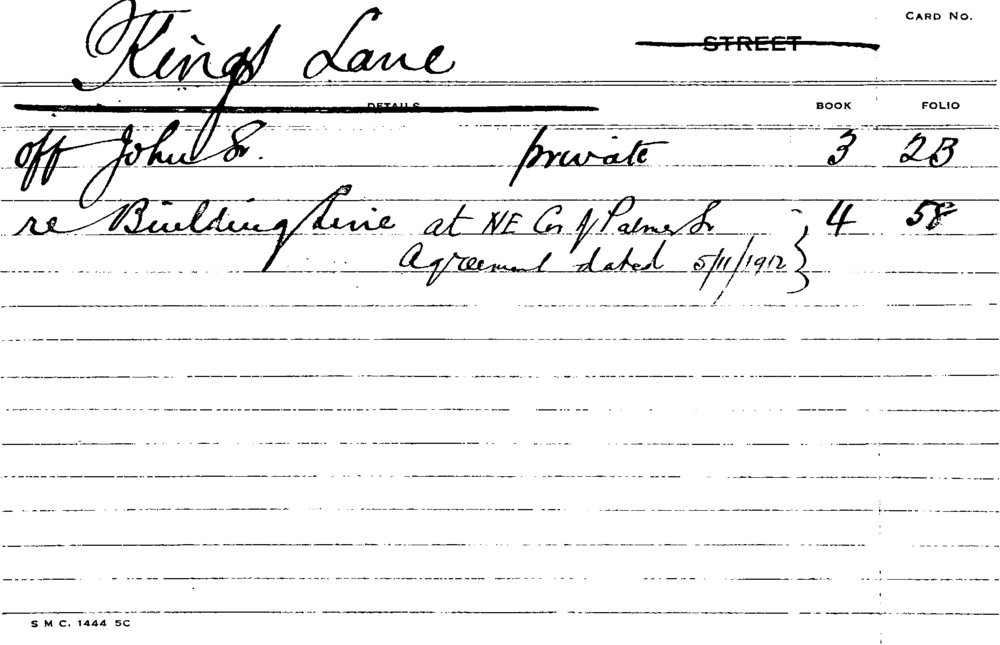 CARD NO.
Kings Lane STREET
DETAILS BOOK FOLIO
off John St. private 3 23
re Building Line at NE Cor of Palmer St 4 58
Agreement dated 5/11/1912
S M C. 1444 5C